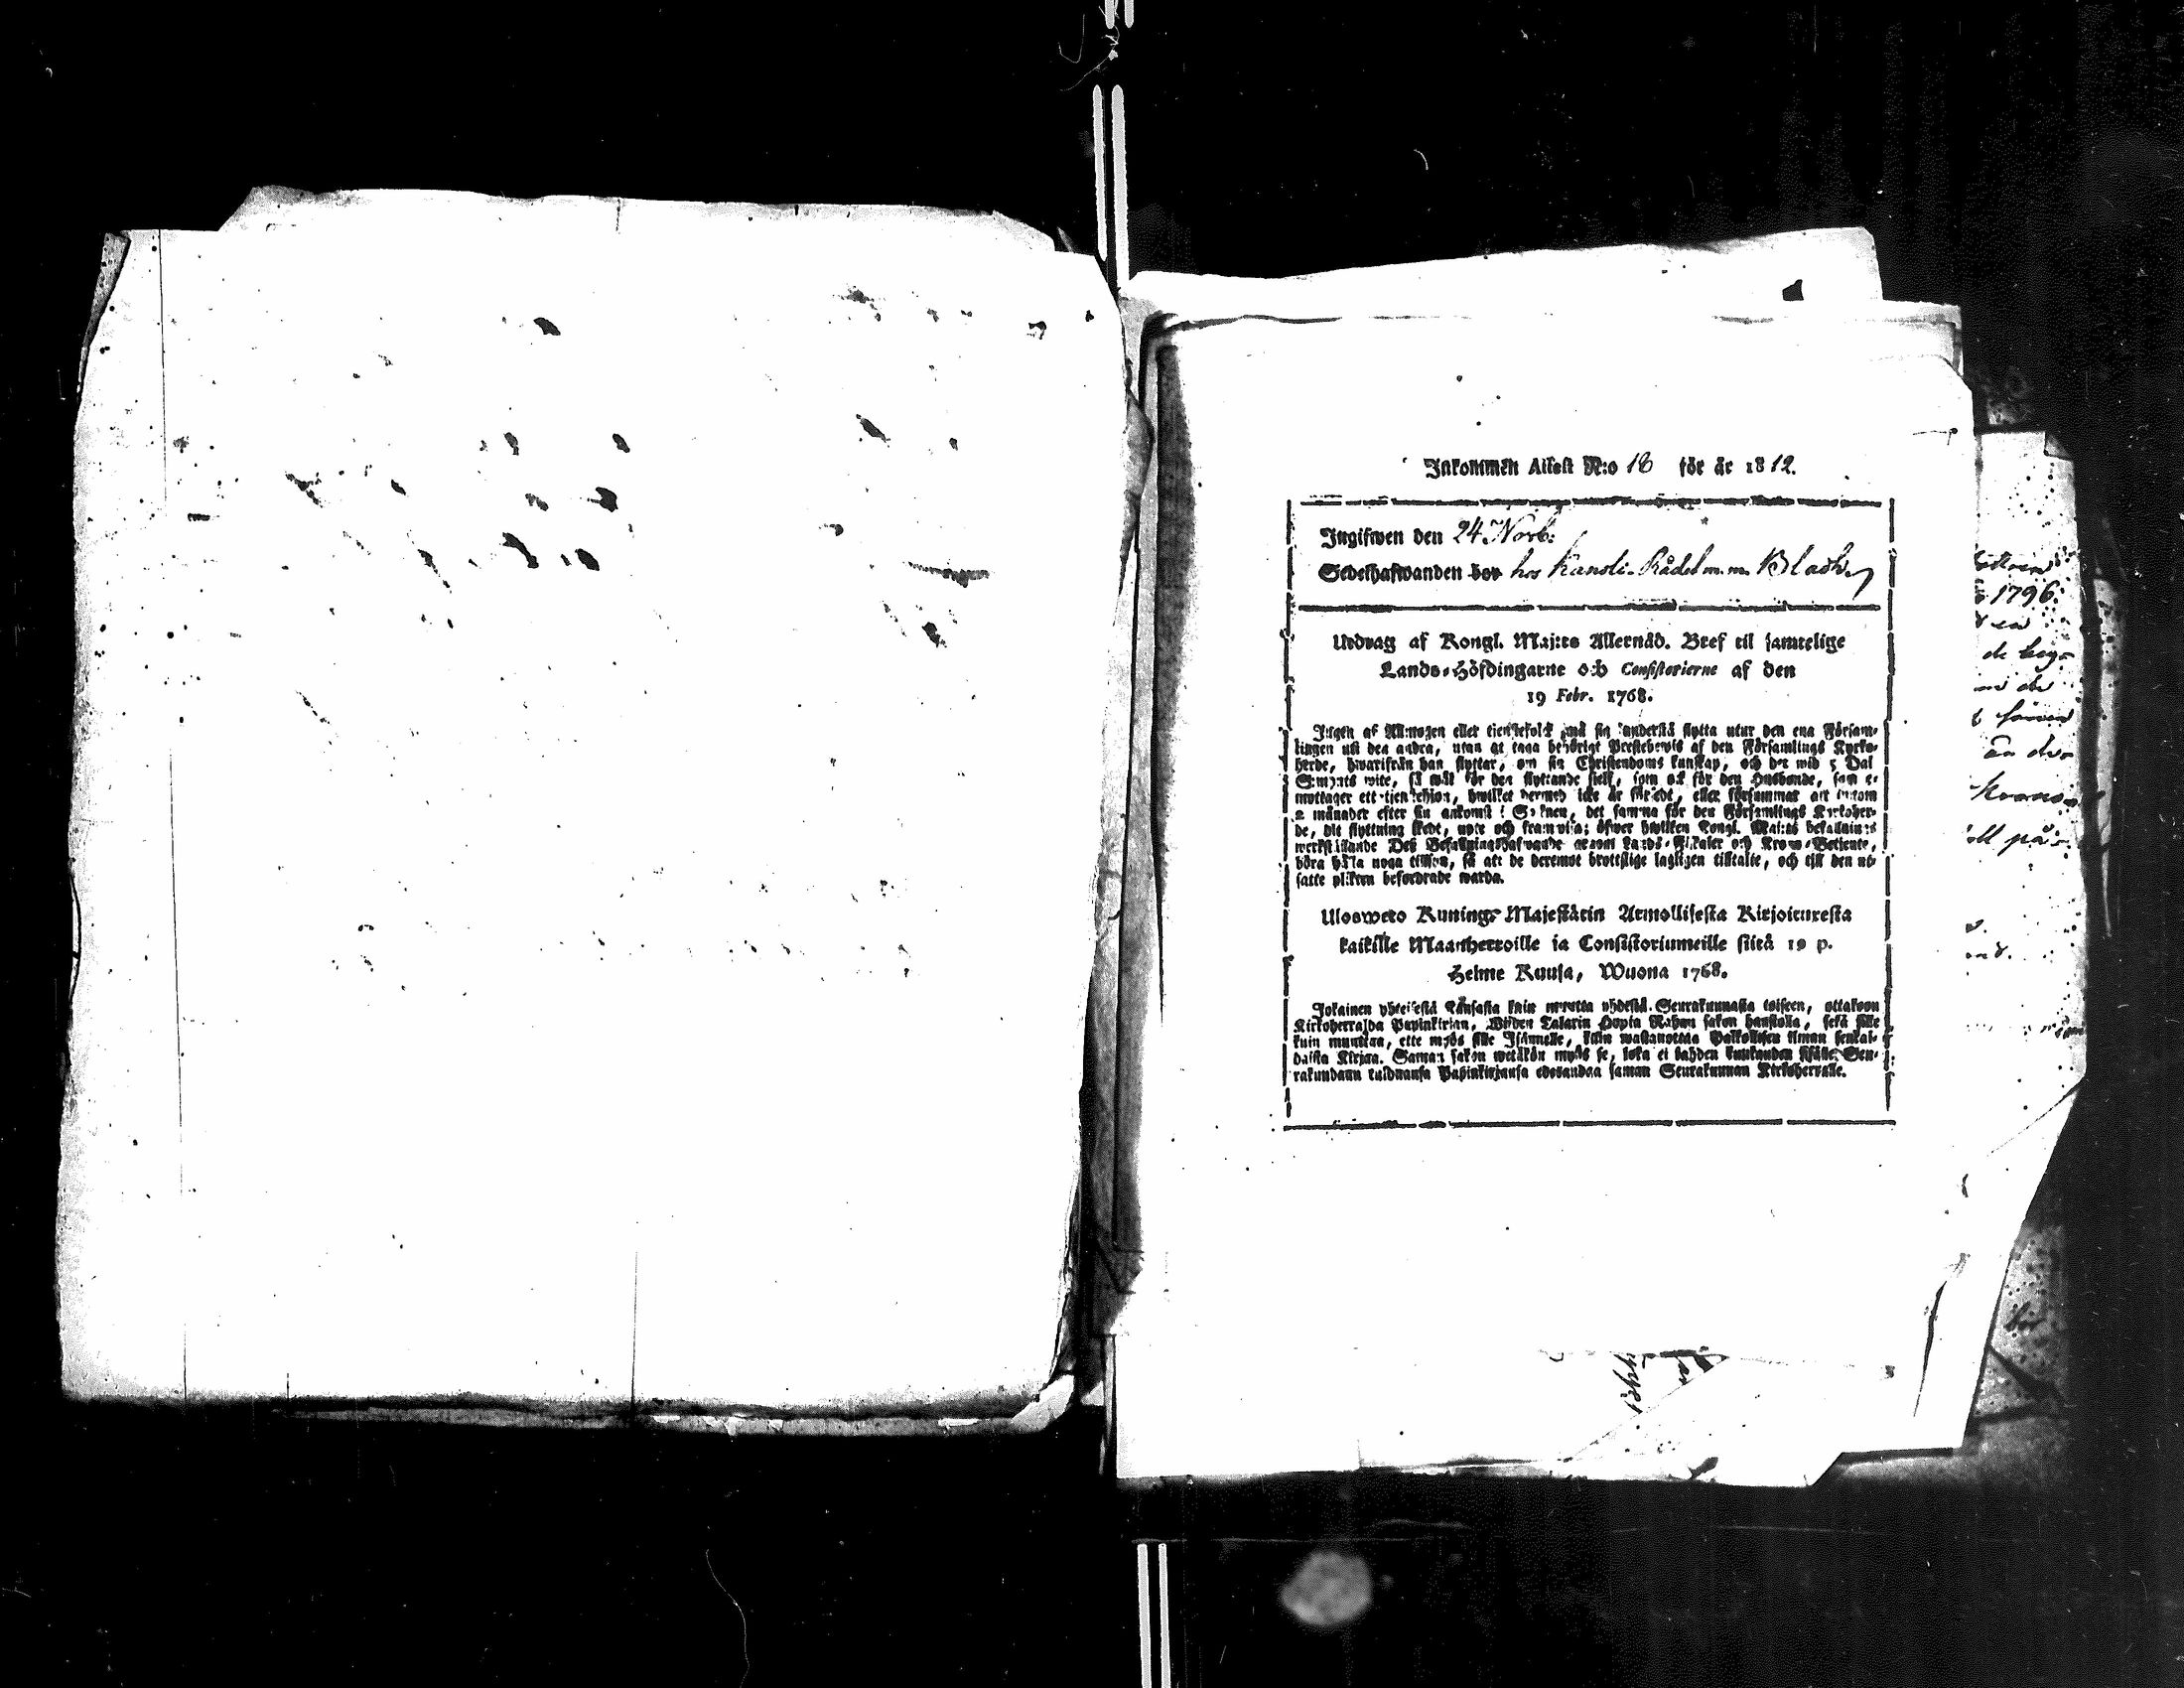 Inkommen Attest N:o 18 för år 1812.
Ingifwen den 24 Novb:
Sedelhafwanden bor hos Kansli-Rådet m.m. Bladh
Utdrag af Kongl. Maj:ts Allernåd. Bref til samtelige
Lands-Höfdingarne och Consistorierne af den
19 Febr. 1768.
Ingen af Allmogen eller tienstefolck må sig understå flytta utur den ena Försam-
lingen uti den andra, utan at taga behörigt Prestebewis af den Församlings Kyrko-
herde, hwarifrån han flyttar, om sin Christendoms kunskap, och det wid 5 Dal
S:mynts wite, så wäl för den flyttande sielf, som ock för den Husbonde, som e-
mottager ett tienstehion, hwilket dermed icke är försedt, eller försummar att innom
2 månader efter sin ankomst i Soknen, det samma för den Församlings Kyrkoher-
de, dit flyttning skedt, upte och framwisa; öfwer hwilken Kongl. Maj:ts befallnings
werkställande Des Befallningshafwande genom Lands-Fiskaler och Krono-Betiente,
böra hålla noga tillsyn, så att de deremot brottslige lagligen tilltalte, och till den ut-
satte plikten befordrade warda.
Ulosweto Kuningl. Majestätin Armollisesta Kirjoituxesta
kaikille Maanherroille ja Consistoriumeille siitä 19 p.
Helme Kuusa, Wuona 1768.
Jokainen yhteisestä Kansasta kuin muutta yhdestä Seurakunnasta toiseen, ottakoon
Kirkoherralda Papinkirjan, Wijden Talarin Hopia Rahan sakon haastolla, sekä sille
kuin muuttaa, ette myös sille Isännelle, kuin wastanottaa Palkollisen ilman senkal-
daista Kirjaa. Saman sakon wetäkön myös se, joka ei kahden kuukauden sisälle, Seu-
rakundaan tulduansa Papinkirjaansa edesandaa saman Seurakunnan Kirkoherralle.
1796.